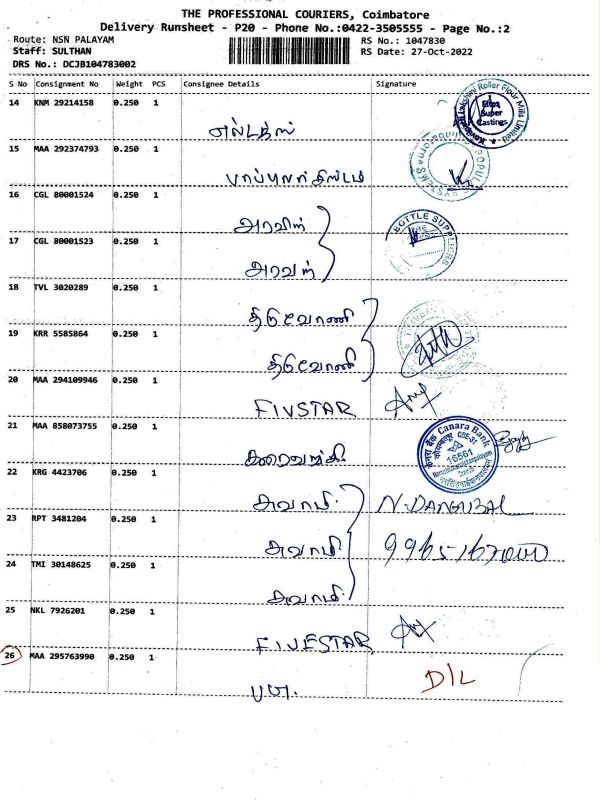 THE PROFESSIONAL COURIERS, Coimbatore
Delivery Runsheet - P20 - Phone No.:0422-3505555 - Page No.:2
Route: NSN PALAYAM
RS No.: 1047830
Staff: SULTHAN
RS Date: 27-Oct-2022
DRS No.: DCJB104783002
S No Consignment No Weight PCS Consignee Details Signature
14 KNM 29214158 0.250 1
15 MAA 292374793 0.250 1
16 CGL 80001524 0.250 1
அரவிந்
17 CGL 80001523 0.250 1
18 TVL 3020289 0.250 1
திருவோணி
19 KRR 5585864 0.250 1
திருவோணி
20 MAA 294109946 0.250 1
FIVSTAR
21 MAA 858073755 0.250 1
Canara Bank
16561
22 KRG 4423706 0.250 1
சுவாமி
23 RPT 3481204 0.250 1
சுவாமி
24 TMI 30148625 0.250 1
சுவாமி
25 NKL 7926201 0.250 1
FIVESTAR
26 MAA 295763990 0.250 1
D/L